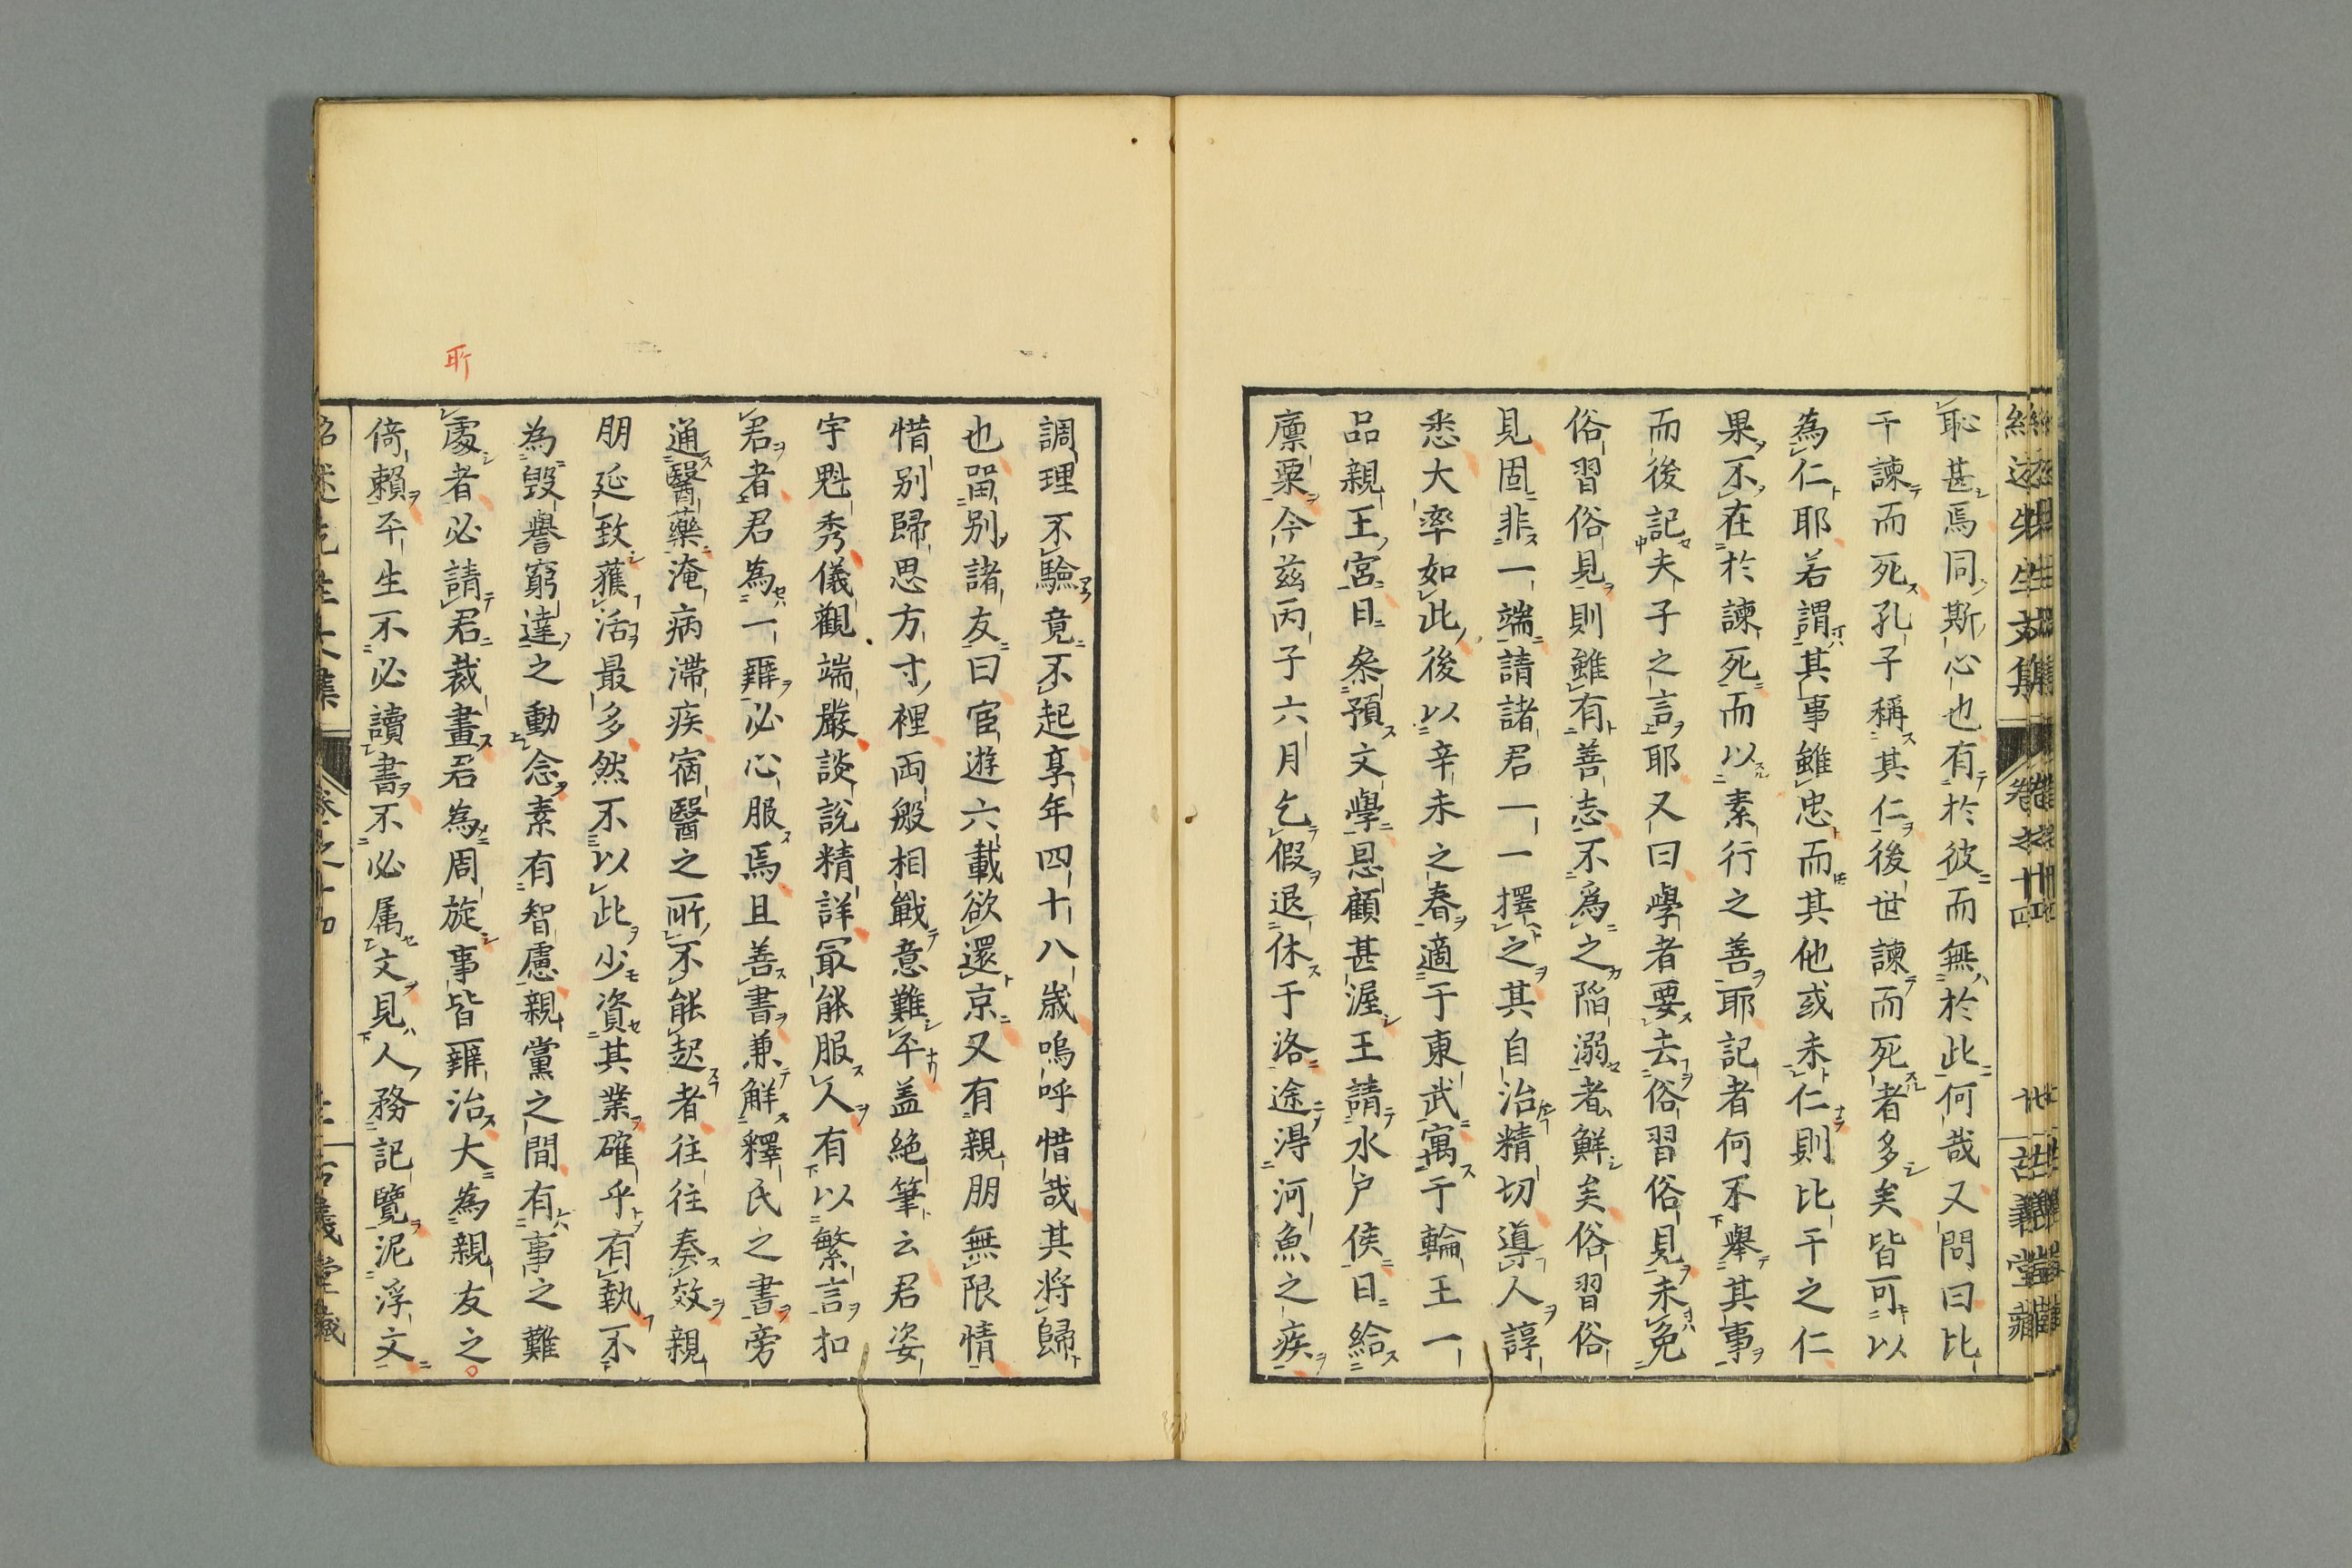 紹述先生文集 卷之十四 古義堂藏
恥甚焉同斯心也有於彼而無於此何哉又問曰比
干諫而死孔子稱其仁後世諫而死者多矣皆可以
為仁耶若謂其事雖忠而其他或未仁則比干之仁
果不在於諫死而以素行之善耶記者何不舉其事
而後記夫子之言耶又曰學者要去俗習俗見未免
俗習俗見則雖有善志不為之陷溺者鮮矣俗習俗
見固非一端請諸君一一擇之其自治精切導人諄
悉大率如此後以辛未之春適于東武寓于輪王一
品親王宮日叅預文學恩顧甚渥王請水戶侯日給
廪粟今茲丙子六月乞假退休于洛途得河魚之疾
調理不驗竟不起享年四十八歲嗚呼惜哉其将歸
也畱別諸友曰宦遊六載欲還京又有親朋無限情
惜别歸思方寸裡両般相戰意難平盖絶筆云君姿
宇魁秀儀觀端嚴談說精詳冣能服人有以繁言扣
君者君為一辨必心服焉且善書兼解釋氏之書旁
通醫藥淹病滯疾宿醫之所不能起者往往奏效親
朋延致獲活最多然不以此少資其業確乎有執不
為毀譽窮達之動念素有智慮親黨之間有事之難
處者必請君裁畫君為周旋事皆辨治大為親友之
倚賴平生不必讀書不必属文見人務記覽泥浮文
所
紹述先生文集 卷之十四 古義堂藏